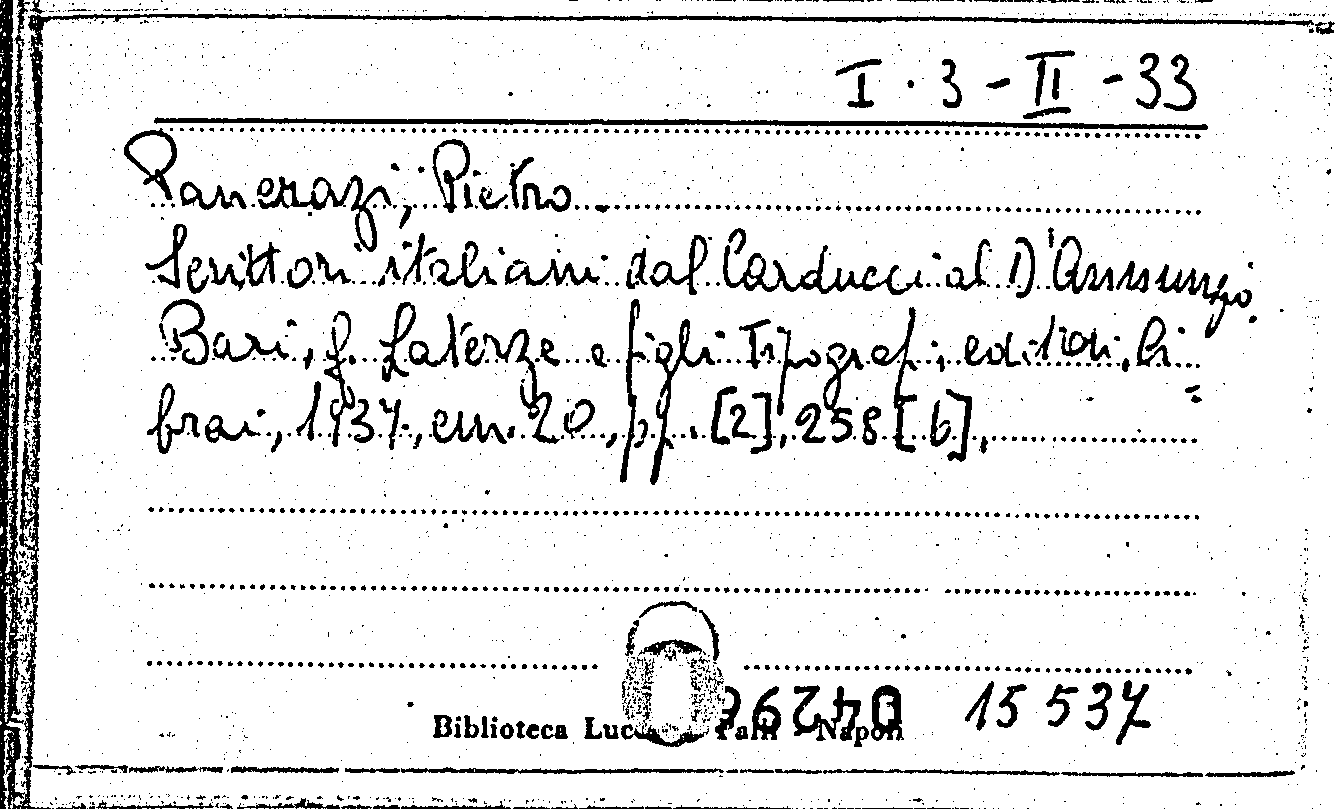 I · 3 - II - 33
Pancrazi, Pietro.
Scrittori italiani dal Carducci al D'Annunzio.
Bari, G. Laterza e figli Tipografi, editori, li=
brai, 1937, cm. 20, pp. [2], 258 [6].
04296 15537
Biblioteca Palli - Napoli